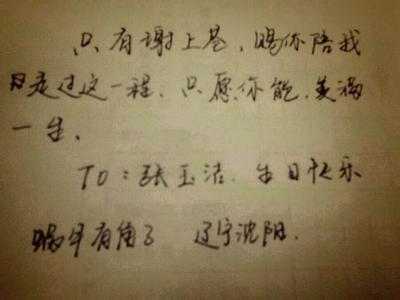 只有谢上苍,赐你陪我
走过这一程.只愿你能,美满
一生.
TO:张玉洁.生日快乐
蜗牛有角了 辽宁沈阳.